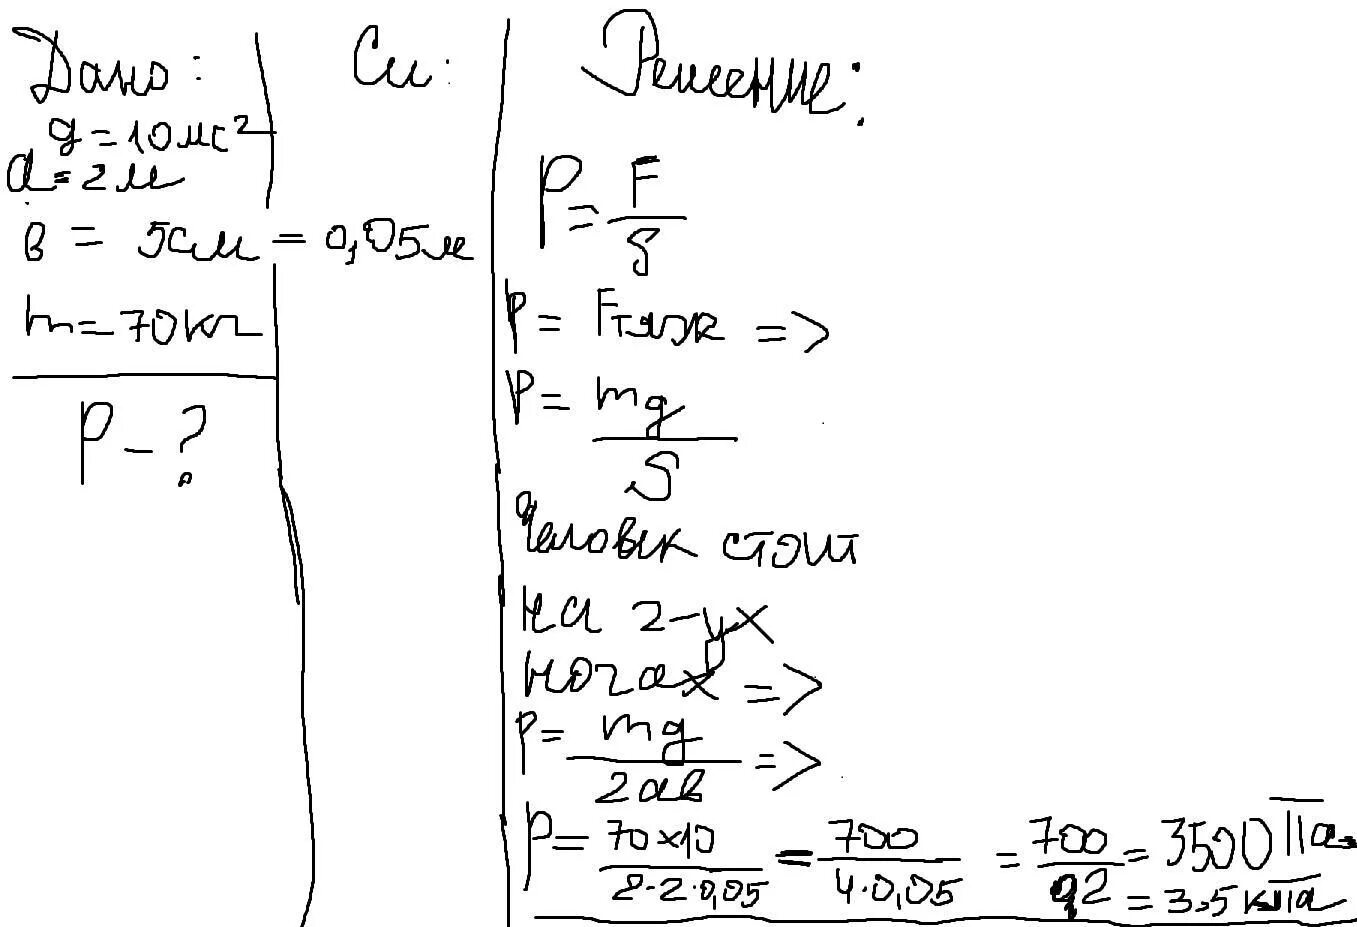 Дано:
g = 10 мс²
a = 2 м
в = 5 см = 0,05 м
m = 70 кг
P - ?
Си:
Решение:
P = F
S
P = Fтяж =>
P = mg
S
Человек стоит
на 2-ух
ногах =>
P = mg =>
2ав
P = 70×10 = 700 = 700 = 3500 Па
2·2·0,05 4·0,05 0,2 = 3,5 кПа